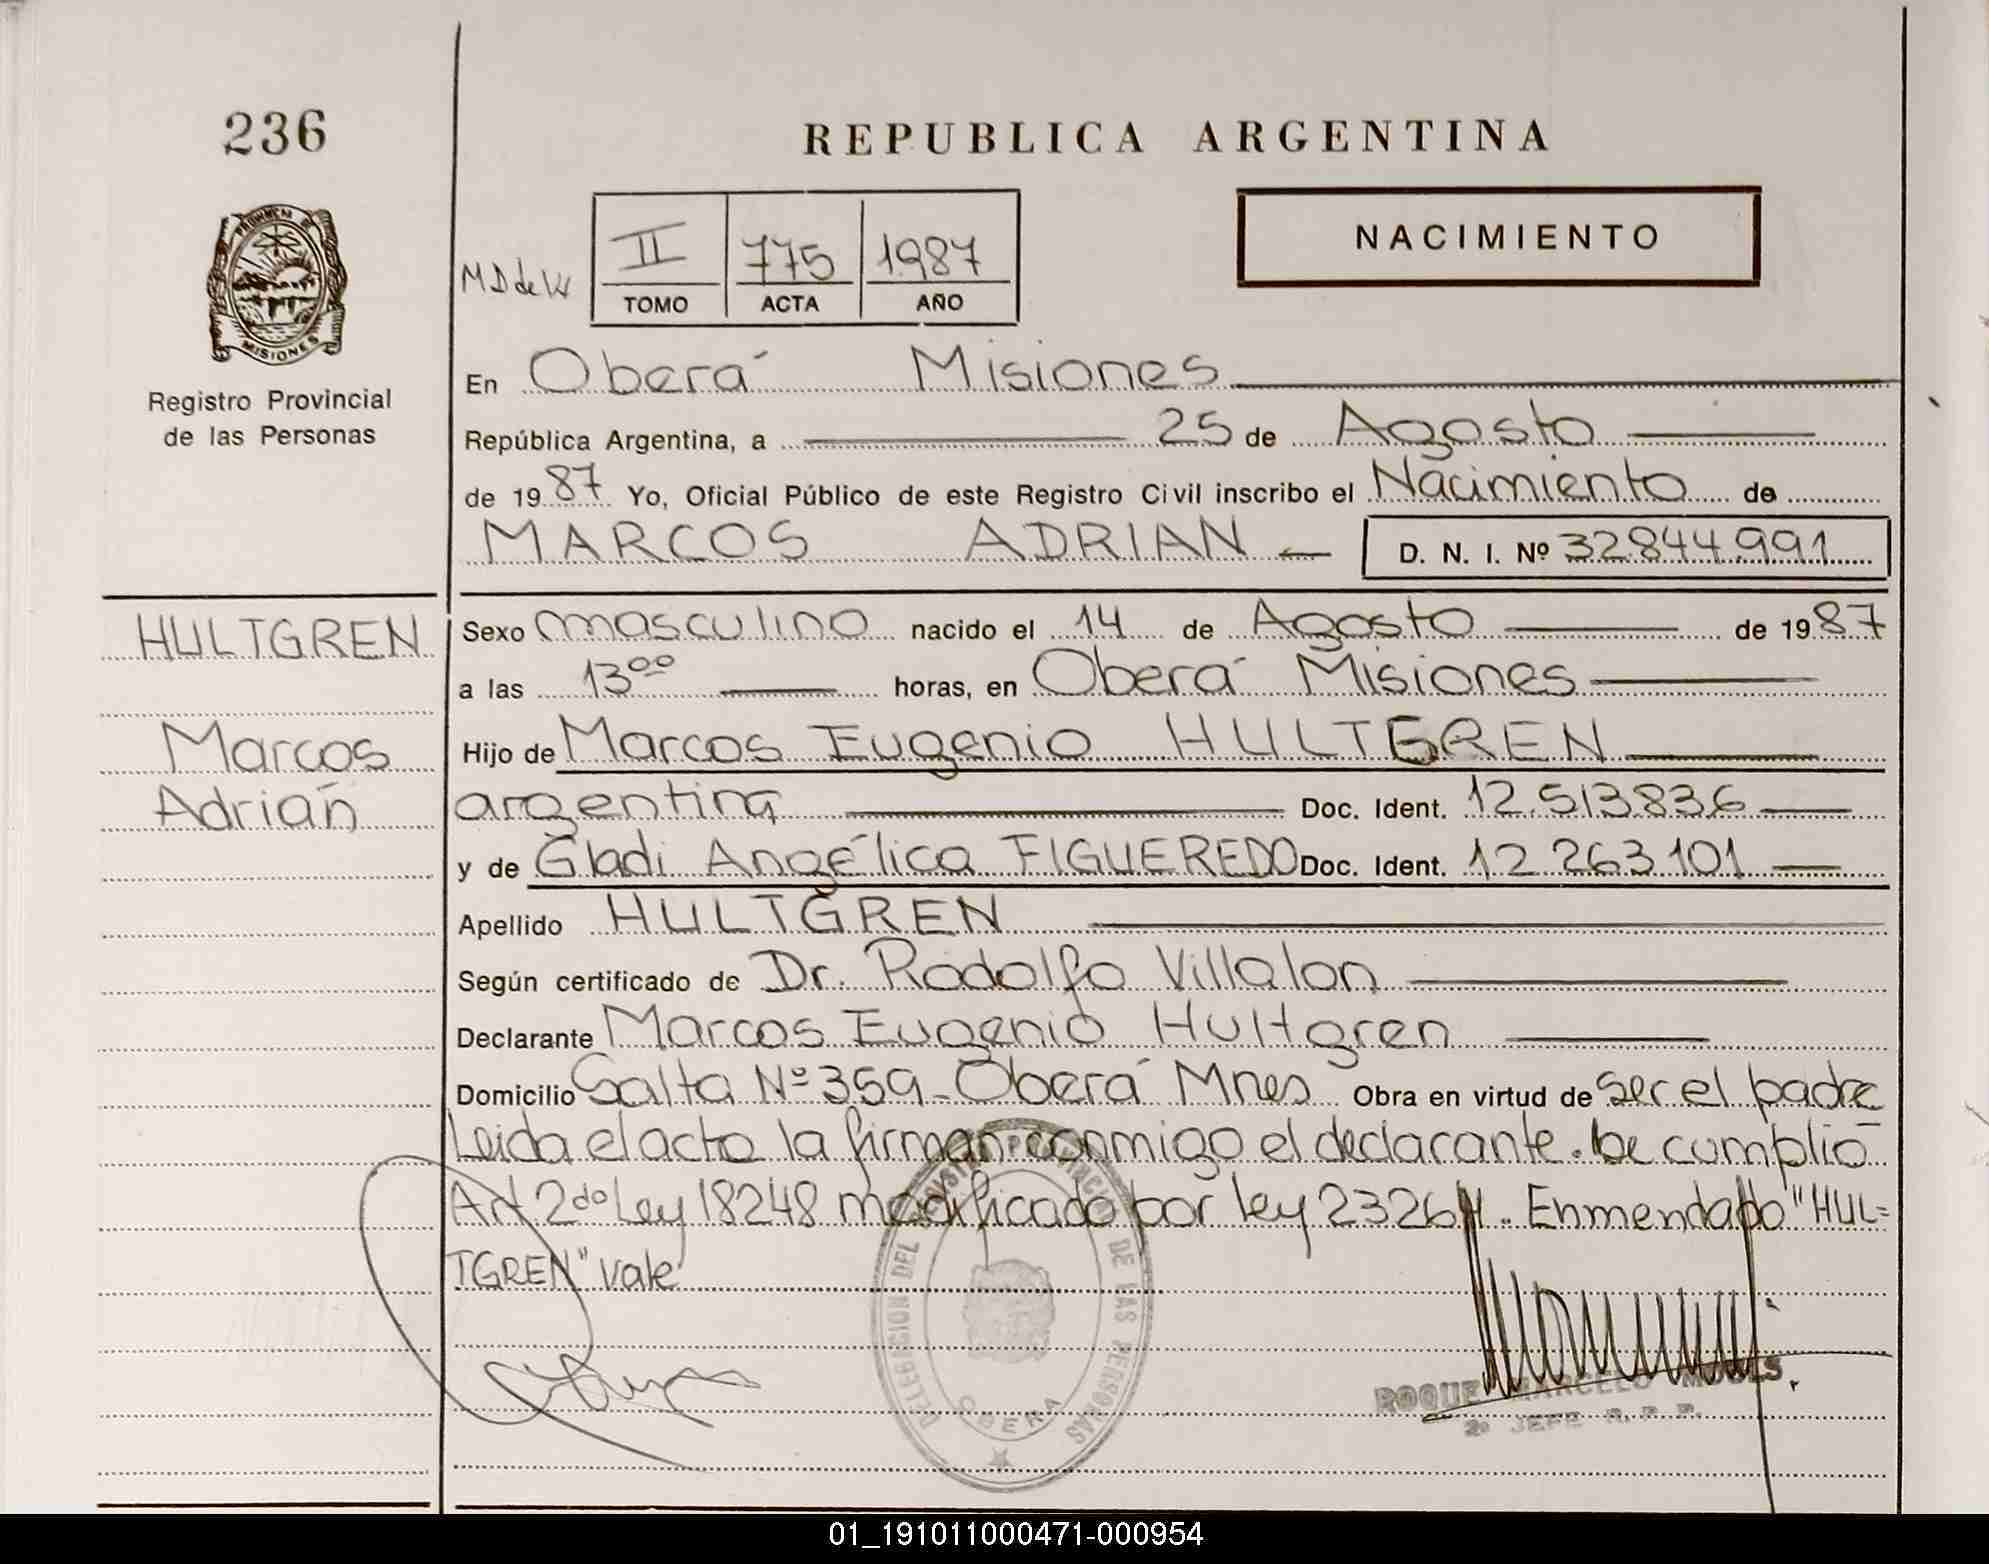 236
REPUBLICA ARGENTINA
PROVINCIA DE MISIONES
Registro Provincial
de las Personas
MD de W
II 775 1987
TOMO ACTA AÑO
NACIMIENTO
En Oberá Misiones
República Argentina, a 25 de Agosto
de 1987 Yo, Oficial Público de este Registro Civil inscribo el Nacimiento de
MARCOS ADRIAN D. N. I. Nº 32.844.991
HULTGREN
Marcos
Adrián
Sexo masculino nacido el 14 de Agosto de 1987
a las 13⁰⁰ horas, en Oberá Misiones
Hijo de Marcos Eugenio HULTGREN
argentina Doc. Ident. 12.513.836
y de Gladi Angélica FIGUEREDO Doc. Ident. 12.263.101
Apellido HULTGREN
Según certificado de Dr. Rodolfo Villalon
Declarante Marcos Eugenio Hultgren
Domicilio Salta Nº 359 - Oberá Mnes Obra en virtud de ser el padre
Leida el acto la firman conmigo el declarante. Se cumplió
Art 2do Ley 18248 modificado por ley 23264. Enmendado "HUL=
TGREN" vale
DELEGACION DEL REGISTRO PROVINCIAL DE LAS PERSONAS
OBERA
ROQUE MARCELO
2º JEFE R. P. P.
01_191011000471-000954